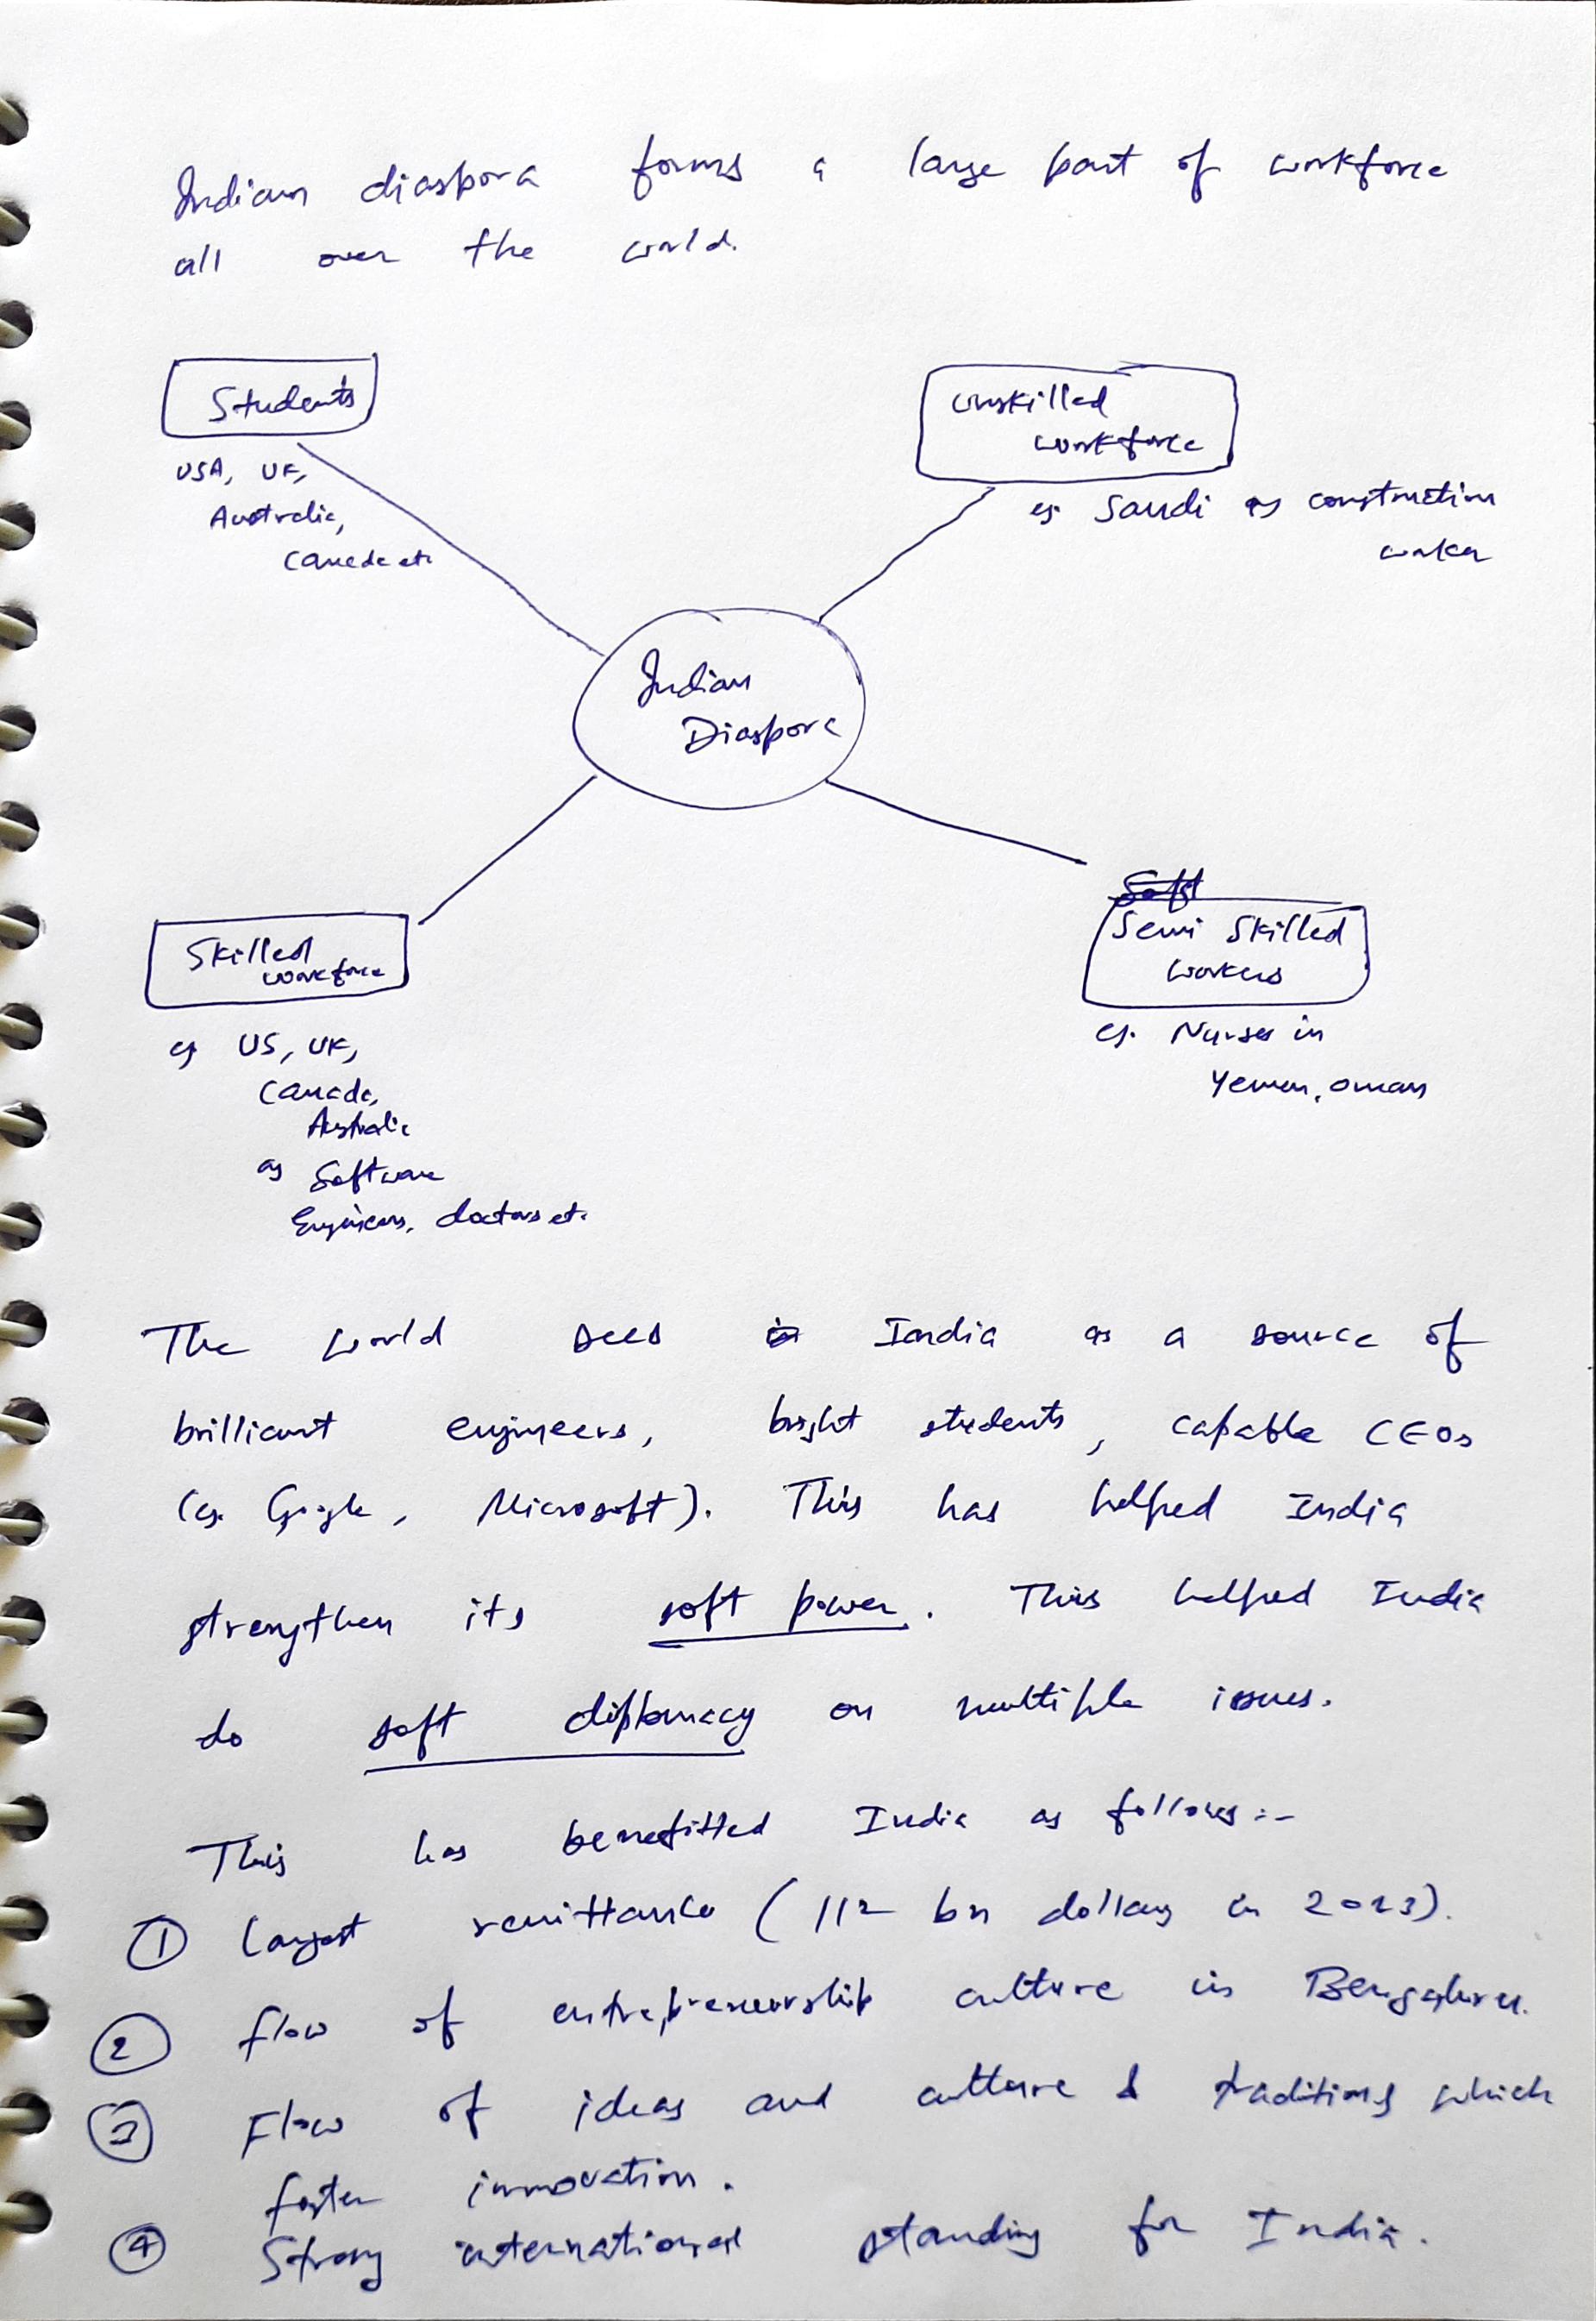 Indian diaspora forms a large part of workforce
all over the world.
Students
USA, UK,
Australia,
Canada etc
Unskilled
workforce
eg Saudi as construction
worker
Indian
Diaspora
Skilled
workforce
eg US, UK,
Canada,
Australia
as Software
Engineers, doctors etc.
Soft
Semi Skilled
workers
eg. Nurses in
Yemen, Oman
The world sees in India as a source of
brilliant engineers, bright students, capable CEOs
(eg. Google, Microsoft). This has helped India
strengthen its soft power. This helped India
do soft diplomacy on multiple issues.
This has benefitted India as follows :-
① Largest remittance (112 bn dollars in 2023).
② flow of entrepreneurship culture in Bengaluru.
③ Flow of ideas and culture & traditions which
foster innovation.
④ Strong international standing for India.